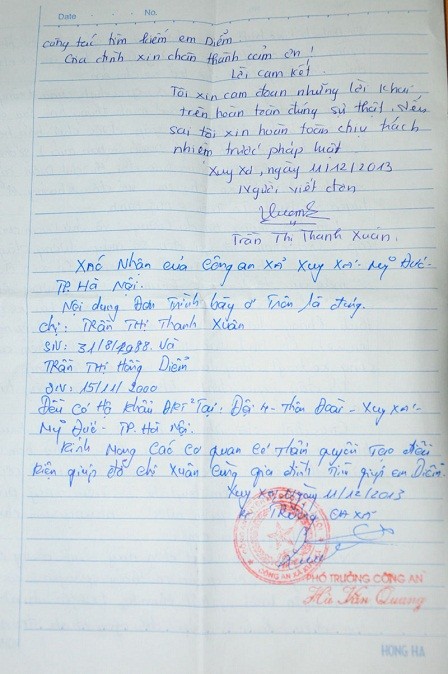 Date No.
công tác tìm kiếm em Diễm.
Gia đình xin chân thành cảm ơn!
Lời cam kết.
Tôi xin cam đoan những lời khai
trên hoàn toàn đúng sự thật. Nếu
sai tôi xin hoàn toàn chịu trách
nhiệm trước pháp luật
Xuy Xá, ngày 11/12/2013
Người viết đơn
Trần Thị Thanh Xuân.
Xác Nhận của Công an Xã Xuy Xá - Mỹ Đức -
TP. Hà Nội.
Nội dung Đơn Trình bày ở Trên là đúng.
Chị: Trần Thị Thanh Xuân
SN: 31/8/1988. Và
Trần Thị Hồng Diễm
SN: 15/11/2000
Đều có Hộ khẩu ĐKTT Tại: Đội 4 - Thôn Đoài - Xuy Xá -
Mỹ Đức - TP. Hà Nội.
Kính Mong Các Cơ quan Có Thẩm quyền Tạo điều
Kiện giúp đỡ chị Xuân Cùng gia đình tìm giúp em Diễm.
Xuy Xá, Ngày 11/12/2013
Trưởng CA Xã
CÔNG AN XÃ
PHÓ TRƯỞNG CÔNG AN
Hà Văn Quang
HỒNG HÀ